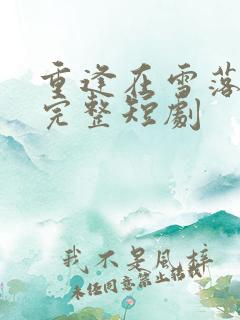 重逢在雪落
完整短劇
我不是風梓
未经同意禁止搭载